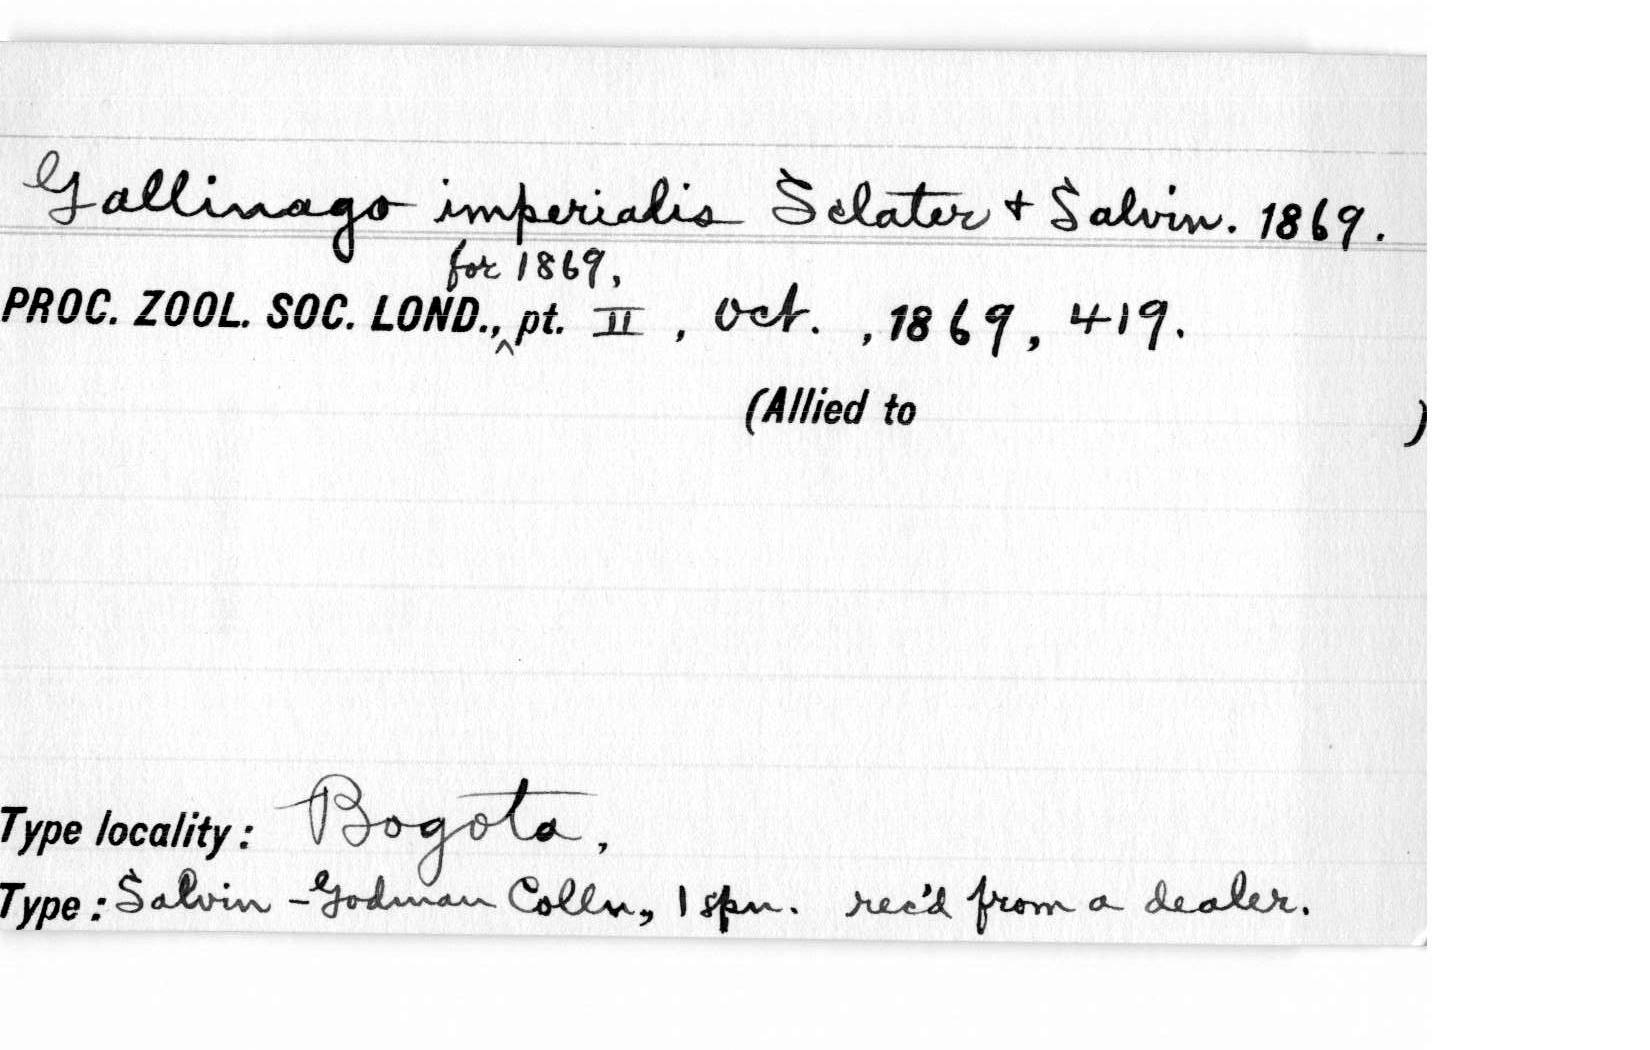 Gallinago imperialis Sclater + Salvin. 1869.
for 1869,
PROC. ZOOL. SOC. LOND., ^ pt. II, Oct., 1869, 419.
(Allied to )
Type locality: Bogota,
Type: Salvin-Godman Colln., 1 spn. rec'd from a dealer.